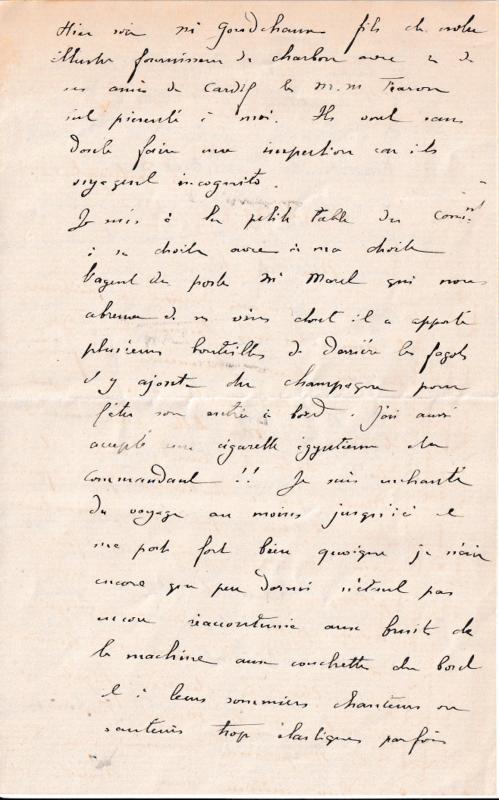 Hier soir Mr Goudchaux fils de notre
illustre fournisseur de charbon avec un de
ses amis de Cardif les M.M.
s'est présenté à moi. Ils vont sans
doute faire une inspection car ils
voyagent incognito.
Je suis à la petite table du Comt
à sa droite avec à ma droite
l'agent des postes Mr Morel qui nous
abreuve de ses vins dont il a apporté
plusieurs bouteilles de derrière les fagots
il y ajoute du champagne pour
fêter son entrée à bord. J'ai aussi
accepté une cigarette égyptienne du
commandant !! Je suis enchanté
du voyage au moins jusqu'ici et
me porte fort bien quoique je n'aie
encore que peu dormi n'étant pas
encore réaccoutumé aux bruits de
la machine aux couchettes du bord
et à leurs sommiers chanteurs ou
sauteurs trop élastiques parfois